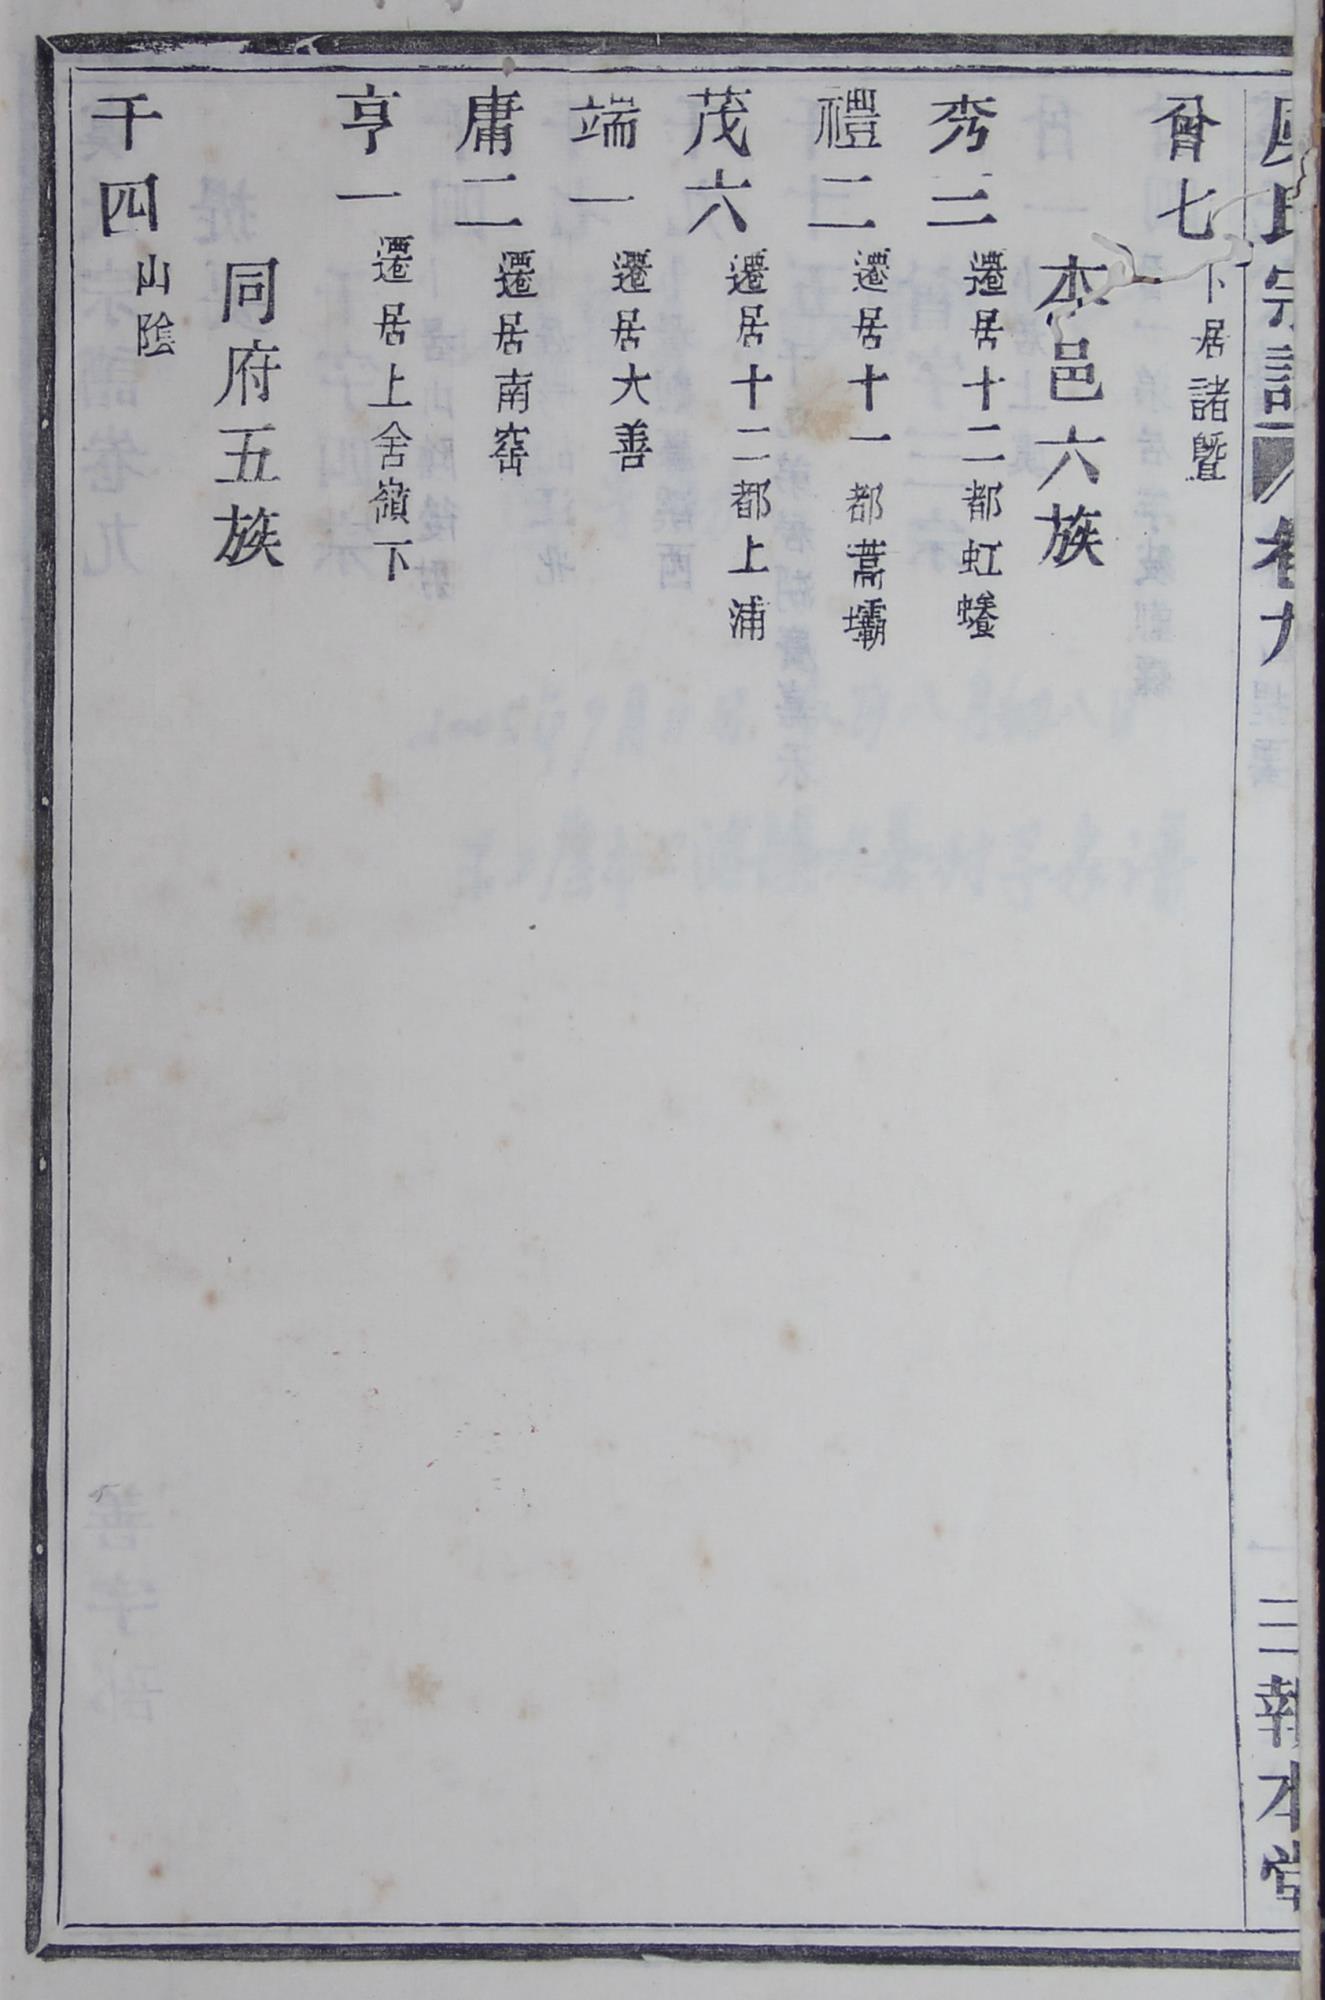 氏宗譜 卷九 二 報本堂
曾七 卜居諸暨
本邑六族
秀三 遷居十二都虹蜷
禮二 遷居十一都蒿壩
茂六 遷居十二都上浦
端一 遷居大善
庸二 遷居南窑
亨一 遷居上舍嶺下
同府五族
千四 山陰